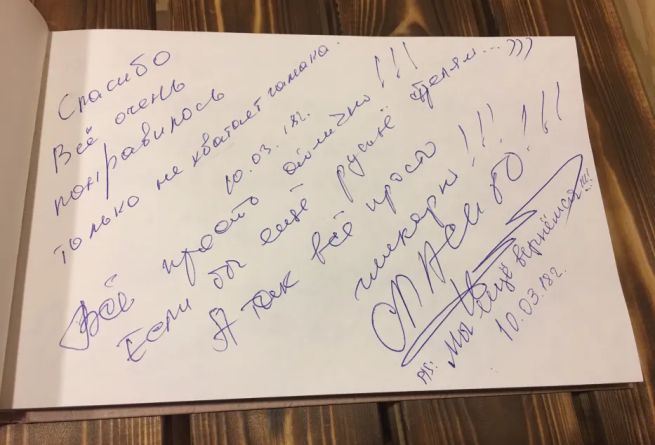 Спасибо
Всё очень
понравилось
только не хватает гамака.
10.03.18г.
Всё просто отлично!!!
Если бы ещё русые...)))
А так всё просто
шикарно!!!
СПАСИБО!!!
PS: Мы ещё вернёмся!!!
10.03.18г.